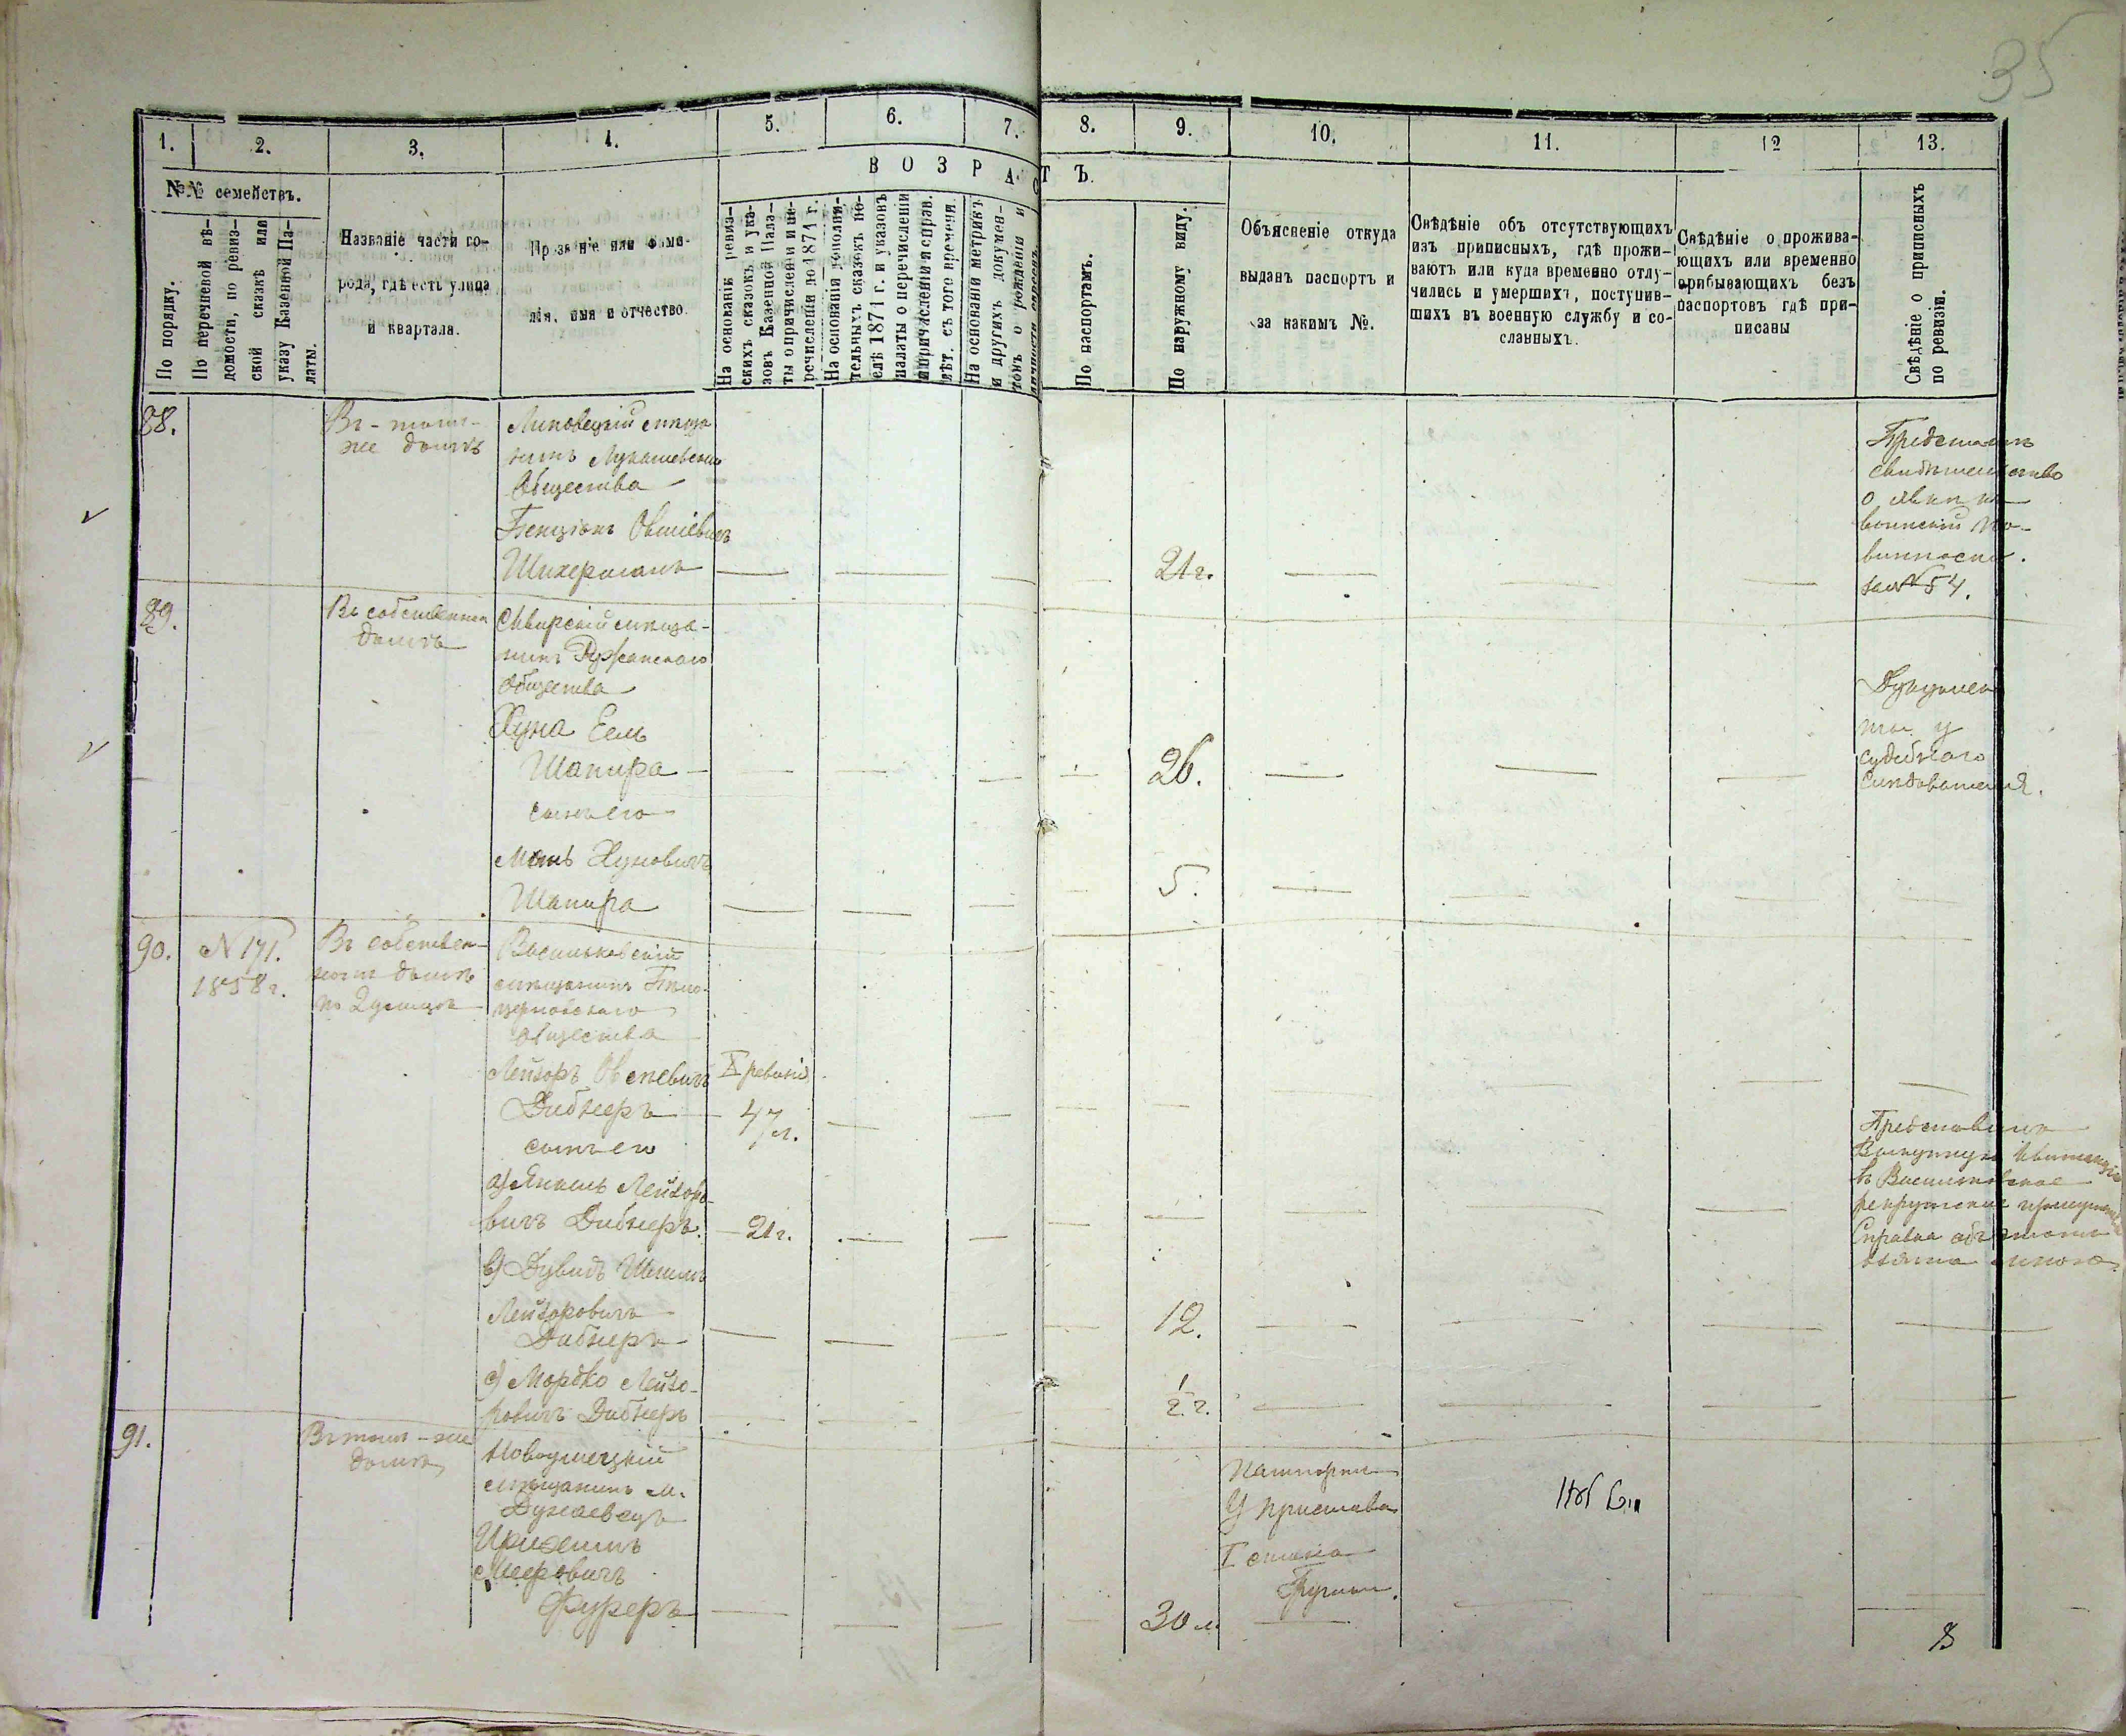 35
1. 2. 3. 4. 5. 6. 7. 8. 9. 10. 11. 12 13.
№№ семействъ.
По порядку.
По перечневой вѣ-
домости, по ревиз-
ской сказкѣ или
указу Казенной Па-
латы.
Названіе части го-
рода, гдѣ есть улица
и квартала.
Прозваніе или фами-
лія, имя и отчество.
ВОЗРАСТЪ.
На основаніи ревиз-
скихъ сказокъ и ука-
зовъ Казенной Пала-
ты о причисленіи и пе-
речисленіи до 1871 г.
На основаніи дополни-
тельныхъ сказокъ по-
слѣ 1871 г. и указовъ
палаты о перечисленіи
и причисленіи и справ.
лѣт. съ того времени.
На основаніи метрикъ
и другихъ докумен-
товъ о рожденіи и
По паспортамъ.
По наружному виду.
Объясненіе откуда
выданъ паспортъ и
за какимъ №.
Свѣдѣніе объ отсутствующихъ
изъ приписныхъ, гдѣ прожи-
ваютъ или куда временно отлу-
чились и умершихъ, поступив-
шихъ въ военную службу и со-
сланныхъ.
Свѣдѣніе о прожива-
ющихъ или временно
прибывающихъ безъ
паспортовъ гдѣ при-
писаны
Свѣдѣніе о приписныхъ
по ревизіи.
88.
Въ-томъ-
же домѣ
Липовецкій мѣща
нинъ Лукашевскаго
Общества
Бенціонъ Овшіевичъ
Шихерманъ
21 г.
свидѣтельство
о явкѣ къ
воинской по-
винности.
за № 54.
89.
Въ собственном
домѣ
Сквирскій мѣща-
нинъ Ружанскаго
Общества
Хуна Ель
Шапира
26.
Документы
у
судебнаго
слѣдователя.
сынъ его
Хуновичъ
Шапира
5.
90.
№ 171.
1858 г.
Въ собствен-
номъ домѣ
по 2 улицѣ
Васильковскій
мѣщанинъ Бѣло-
церковскаго
общества
Лейзоръ Овсѣевичъ
X ревизія
Дибнеръ
47 л.
сынъ его
а) Янкель Лейзоро-
вичъ Дибнеръ.
21 г.
Представилъ
Выкупную квитанцію
въ Васильковское
рекрутское присутствіе
Справка объ этомъ
взята мною.
в) Дувидъ
Лейзоровичъ
Дибнеръ
12.
с) Мордко Лейзо-
ровичъ Дибнеръ
1/2 г.
91.
Въ томъ-же
домѣ
Новоушецкій
мѣщанинъ м.
Дунаевецъ
Мееровичъ
Фуреръ
30 л.
Паспортъ
У пристава
I стана
8